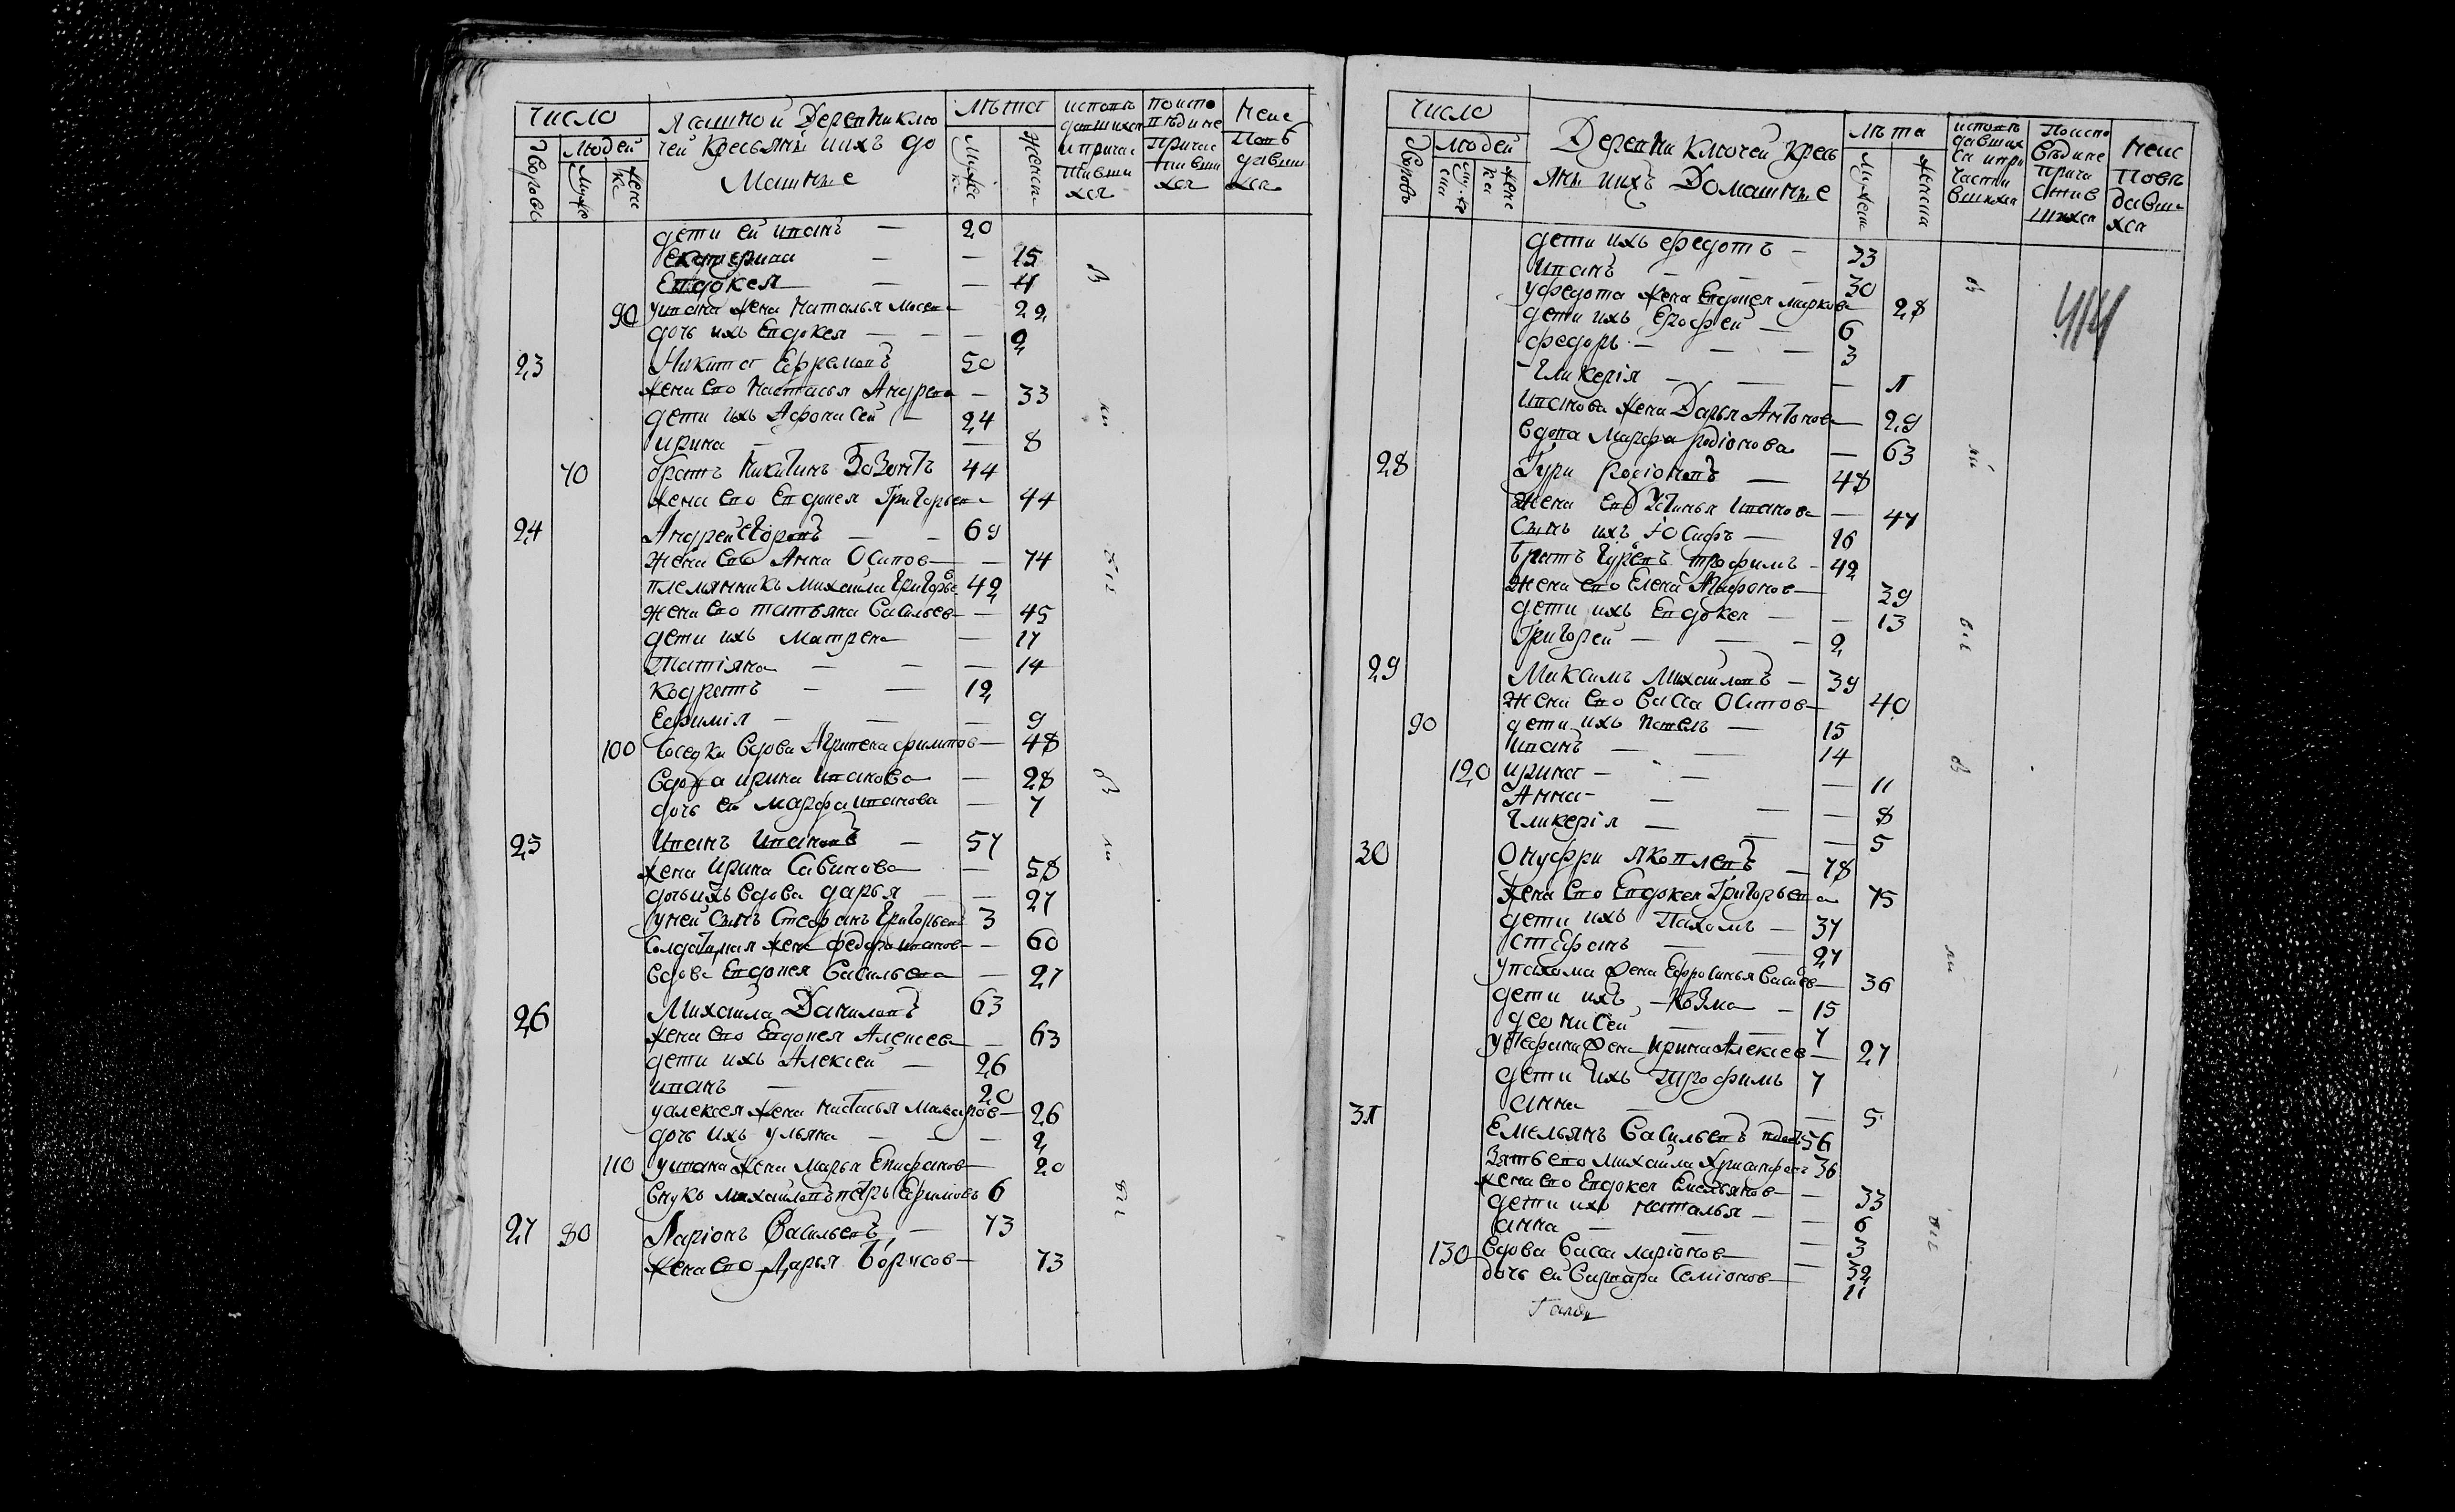 число
людей
дворовъ
мужс
женс
ка
Деревни клю
чей кресьяне ихъ до
машние
лѣта
мужс
ка
женска
исповѣ
и причас
хся
по испо
причас
хся
неис
повѣ
хся
дети ей иванъ — 20
екатерина — — 15
Евдокея — — 11
90 у ивана жена наталья — 29
дочь ихъ Евдокея — — 2
23 Никита Ефремовъ 50
жена ево настасья Андрева — 33
дети ихъ Афонасей — 24
ирина — — 8
70 братъ никитинъ 44
жена ево Евдокея Григорьева 44
24 Андрей — 69
жена ево Анна Осипов — 74
племянникъ михаила григорье 42
жена ево татьяна васильев — 45
дети ихъ матрена — 17
татіяна — — — 14
кодратъ — — 12
Ефимія — — — 9
100 соседка вдова Агрипена филипов — 48
вдова ирина иванова — 28
дочь ей марфа иванова — 7
25 иванъ ивановъ — 57
жена ирина савинова — 58
дочь ихъ вдова дарья — — 27
у ней сынъ Стефанъ григорьевъ 3
салдатцкая жена федора иванов — 60
вдова Евдокея васильева — 27
26 Михаила Даниловъ 63
жена ево Евдокея Алексеев — 63
дети ихъ Алексей — 26
иванъ — — 20
у алексея жена настасья макаров — 26
дочь ихъ ульяна — — — 2
110 у ивана жена марья Епифанов — 20
внукъ михайловъ петръ Ефимовъ 6
27 80 Ларіонъ Васильевъ — 73
жена ево дарья борисов — 73
число
людей
дворовъ
женс
ка
Деревни ключей кресь
яне ихъ Домашние
лѣта
мужеска
женска
исповѣ
давших
ся и при
части
вшихся
поиспо
ведине
прича
стив
шихся
неис
повѣ
давши
хся
414
дети ихъ федотъ — 33
иванъ — — 30
у федота жена Евдокея маркова 28
дети ихъ Ерофей — 6
федоръ — — — 3
гликерія — — — 1
иванова жена Дарья Антонов — 29
вдова марфа родіонова — 63
28 гури родіоновъ — 48
жена ево устинья иванова — 47
сынъ ихъ іосифъ — 16
братъ гуревъ трофимъ — 42
жена ево Елена — 39
дети ихъ Евдокея — — 13
григорей — — — 2
29 Максимъ михайловъ — 39
жена ево васса Осипов — 40
90 дети ихъ павелъ — 15
иванъ — — 14
120 ирина — — — 11
Анна — — — — 8
гликерія — — — 5
30 Онуфри яковлевъ — 78
жена ево Евдокея григорьева 75
дети ихъ пахомъ — 37
стефанъ — 27
у пахома жена Ефросинья василев — 36
дети ихъ — козма — 15
деонисей — — 7
у стефана жена ирина Алексеев — 27
дети ихъ трофимъ 7
анна — — 5
31 Емельянъ васильевъ 56
зять ево михаила 36
жена ево Евдокея Емельянов — 33
дети ихъ наталья — — 6
анна — — — 3
130 вдова васса ларіонов — 32
дочь ей варвара семіонов — 11